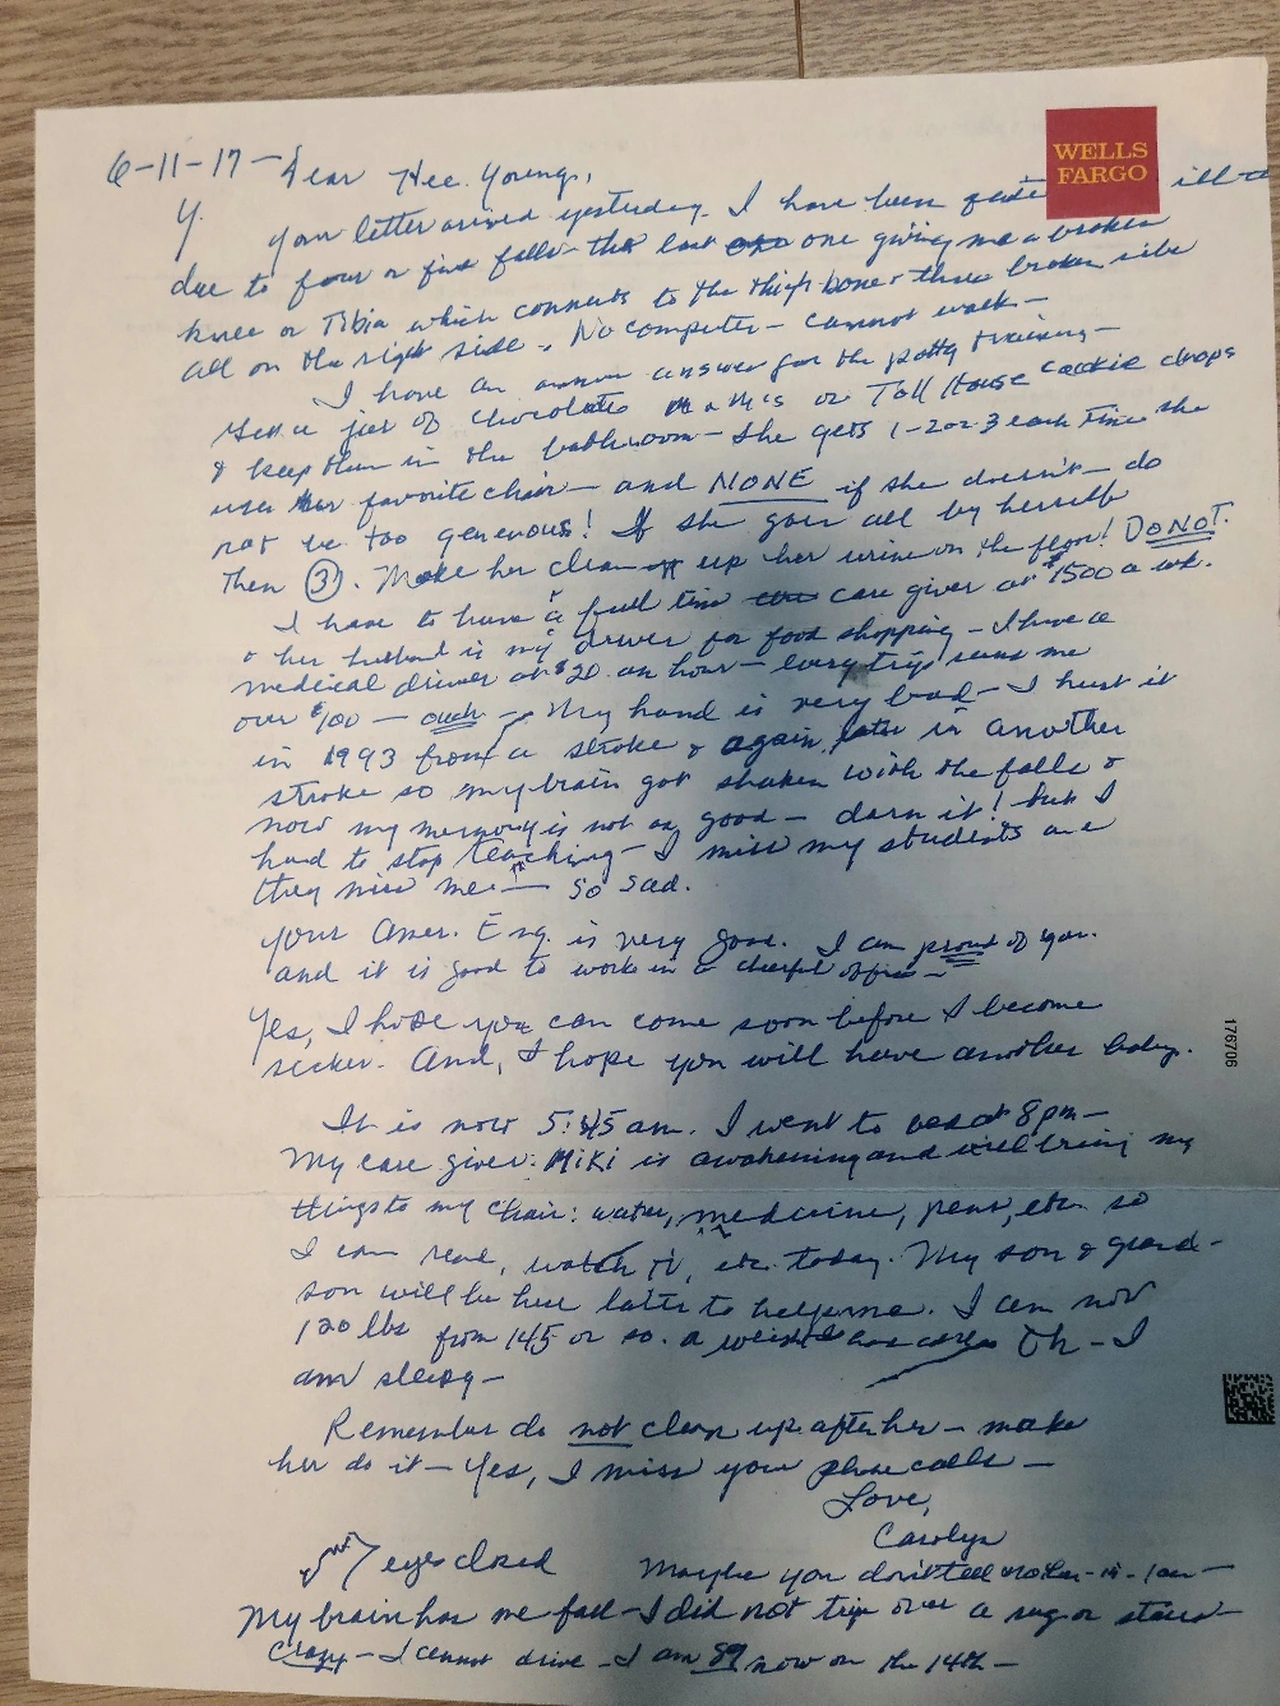 WELLS
FARGO
6-11-17 - Dear Hee Young,
Y. Your letter arived yesterday. I have been quite ill
due to four or five falls - the last one giving me a broken
knee or Tibia which connects to the thigh bone & three broken ribs
all on the right side. No computer - cannot walk -
I have an answer for the potty training -
jar of chocolate M & M's or Toll House cookie chops
& keep them in the bathroom - she gets 1-2 or 3 each time she
uses her favorite chair - and NONE if she doesn't - do
not be too generous! If she goes all by herself
then 3. Make her clean up her urine on the floor! DO NOT.
I have to have a full time care giver at $1500 a wk.
& her husband is my driver for food shopping - I have a
medical driver at $20 an hour - every trip runs me
over $100 - ouch - My hand is very bad - I hurt it
in 1993 from a stroke & again later in another
stroke so my brain got shaken with the falls &
now my memory is not as good - darn it! but I
had to stop teaching - I miss my students and
they miss me - so sad.
your Amer. Eng. is very good. I am proud of you.
and it is good to work in a cheerful office -
Yes, I hope you can come soon before I become
sicker. And, I hope you will have another baby.
176706
It is now 5:45 am. I went to bed at 8 pm -
My care giver: Miki is awakening and will bring my
things to my chair: water, medicine, pens, etc. so
I can read, watch TV, etc. today. My son & grand-
son will be here later to help me. I am now
120 lbs from 145 or so. a Oh - I
am sleepy -
Remember do not clean up after her - make
her do it - Yes, I miss your phone calls -
Love,
Carolyn
eyes closed Maybe you don't tell mother-in-law -
My brain has me fall - I did not trip over a rug or stairs -
crazy - I cannot drive - I am 89 now on the 14th -